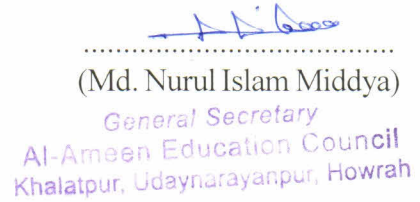 ........................................
(Md. Nurul Islam Middya)
General Secretary
Al-Ameen Education Council
Khalatpur, Udaynarayanpur, Howrah